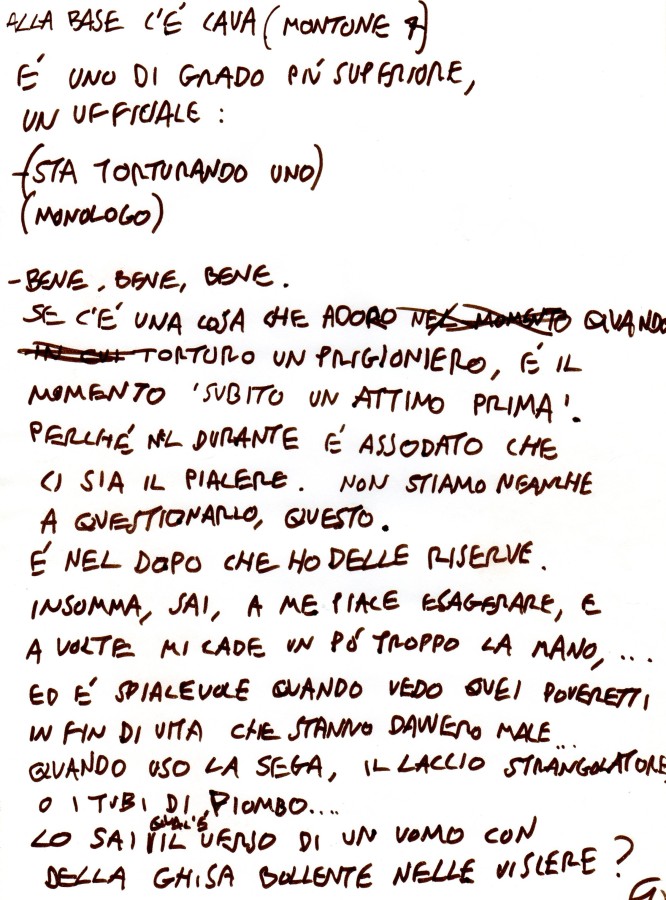 ALLA BASE C'É CAVA (MONTONE
É UNO DI GRADO PIÚ SUPERIORE,
UN UFFICIALE :
-(STA TORTURANDO UNO)
(MONOLOGO)
-BENE, BENE, BENE.
SE C'É UNA COSA CHE ADORO NEL MOMENTO QUANDO
IN CUI TORTURO UN PRIGIONIERO, É IL
MOMENTO 'SUBITO UN ATTIMO PRIMA'.
PERCHÉ NEL DURANTE É ASSODATO CHE
CI SIA IL PIACERE. NON STIAMO NEANCHE
A QUESTIONARLO, QUESTO.
É NEL DOPO CHE HO DELLE RISERVE.
INSOMMA, SAI, A ME PIACE ESAGERARE, E
A VOLTE MI CADE UN PÓ TROPPO LA MANO,...
ED É SPIACEVOLE QUANDO VEDO QUEI POVERETTI
IN FIN DI VITA CHE STANNO DAVVERO MALE...
QUANDO USO LA SEGA, IL LACCIO STRANGOLATORE
O I TUBI DI PIOMBO....
LO SAI QUAL'É IL VERSO DI UN UOMO CON
DELLA GHISA BOLLENTE NELLE VISCERE?